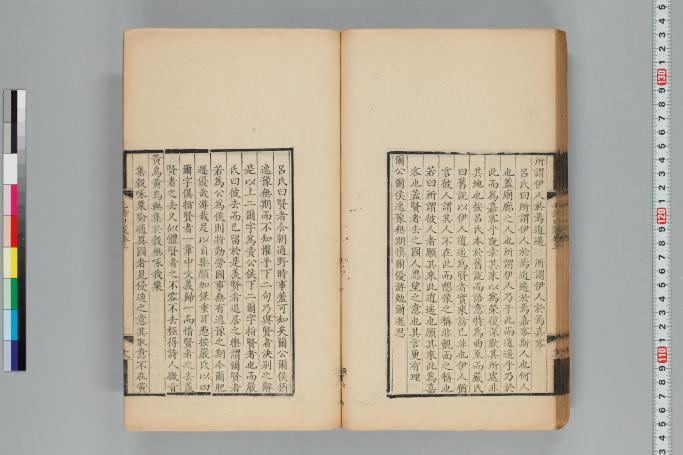 所謂伊人於焉逍遙　所謂伊人於焉嘉客
呂氏曰所謂伊人於焉逍遙於焉嘉客斯人也何人
也蓋廟廊之人也所謂伊人乃于此而逍遙乎乃於
此而為嘉客乎既幸其來以為榮復深歎其所處非
其地也按呂氏本於舊說而語意特為曲至而嚴氏
曰舊說以伊人逍遙為賢者實來訪已非也伊人猶
言彼人謂其人不在此而想像之稱非覿面之稱也
若曰所謂彼人者願其來此逍遙也願其來此為嘉
客也蓋賢者去之國人思望之意也其言更有理
爾公爾侯逸豫無期慎爾優游勉爾遁思
呂氏曰賢者今朝適野時事蓋可知矣爾公爾侯猶
逸豫無期而不知懼乎下二句乃與賢者決別之辭
是以上二爾字為責公侯下二爾字指賢者也而嚴
氏曰彼去而已留於是羨賢者退居之樂謂爾賢者
若為公為侯則將勤勞國事無有逸豫之期今爾肥
遯優哉游哉足以自樂願加保重耳愚按嚴氏以四
爾字俱指賢者一章中文義歸一而惜賢者之去羨
賢者之去又似體賢者之不容不去極得詩人微旨
黃鳥黃鳥無集於穀無啄我粟
集穀啄粟喻適異國者見侵迫之意其取意不在黃